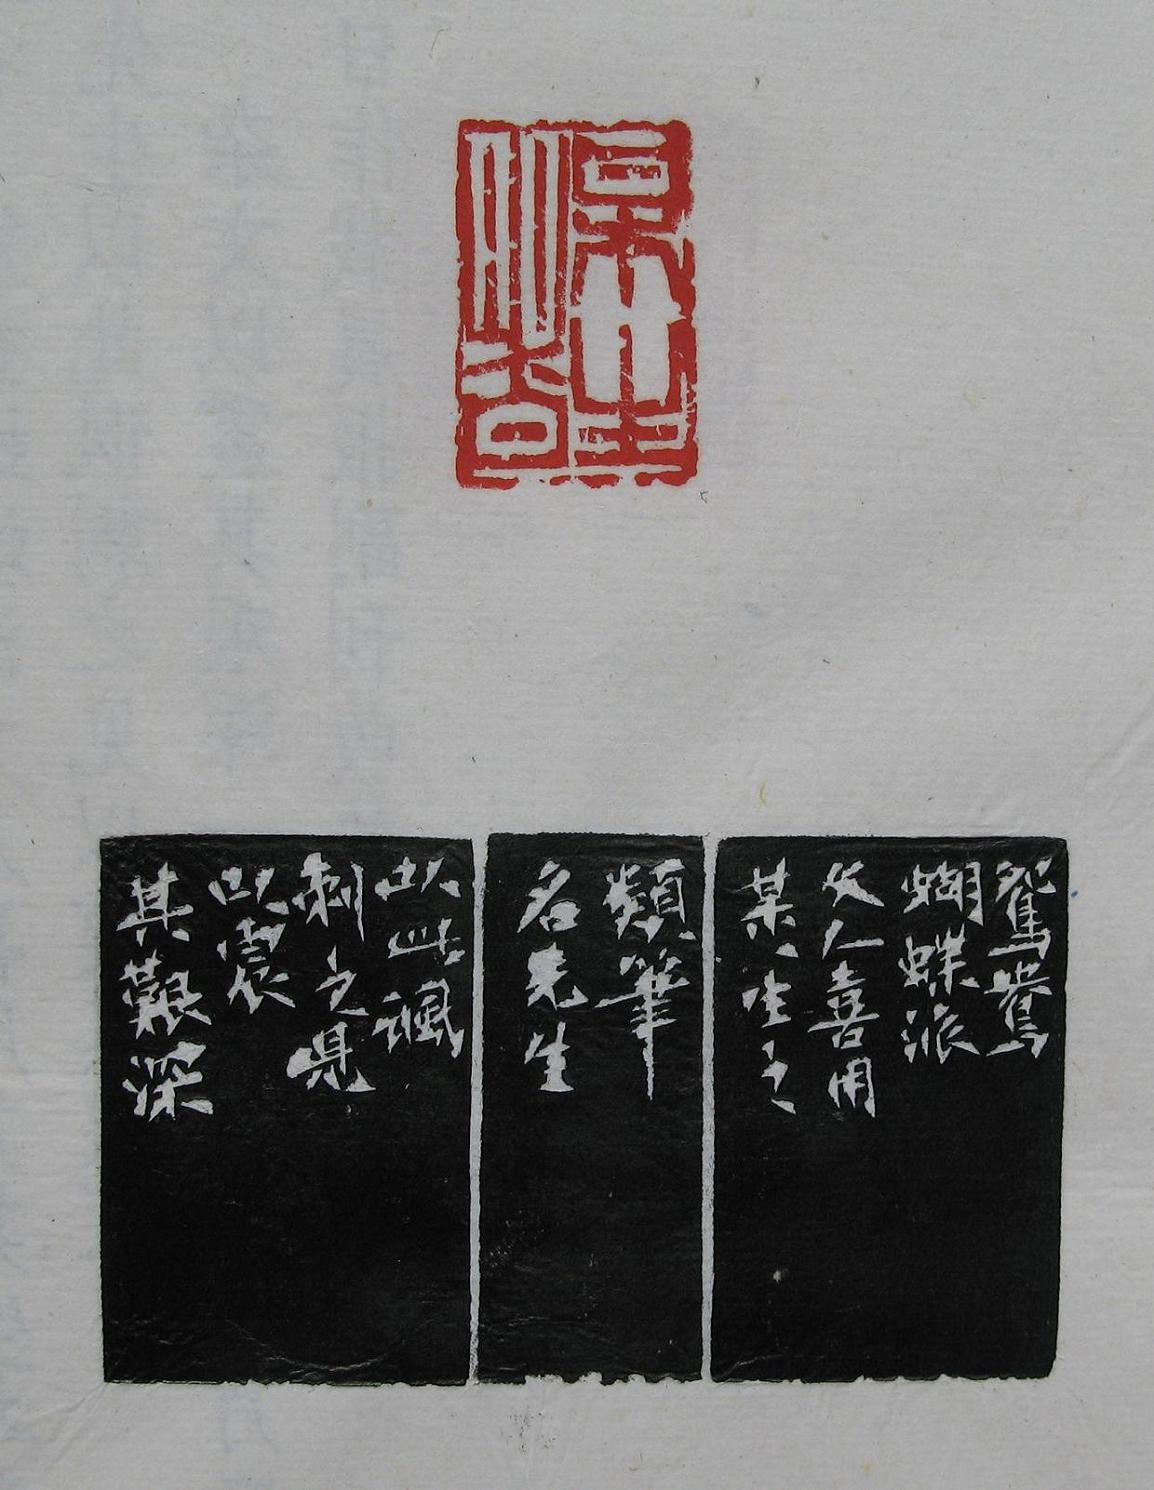 某生
者
鴛鴦
蝴蝶派
文人喜用
某〻生之
類筆
名先生
以此諷
刺之見
以
其艱深